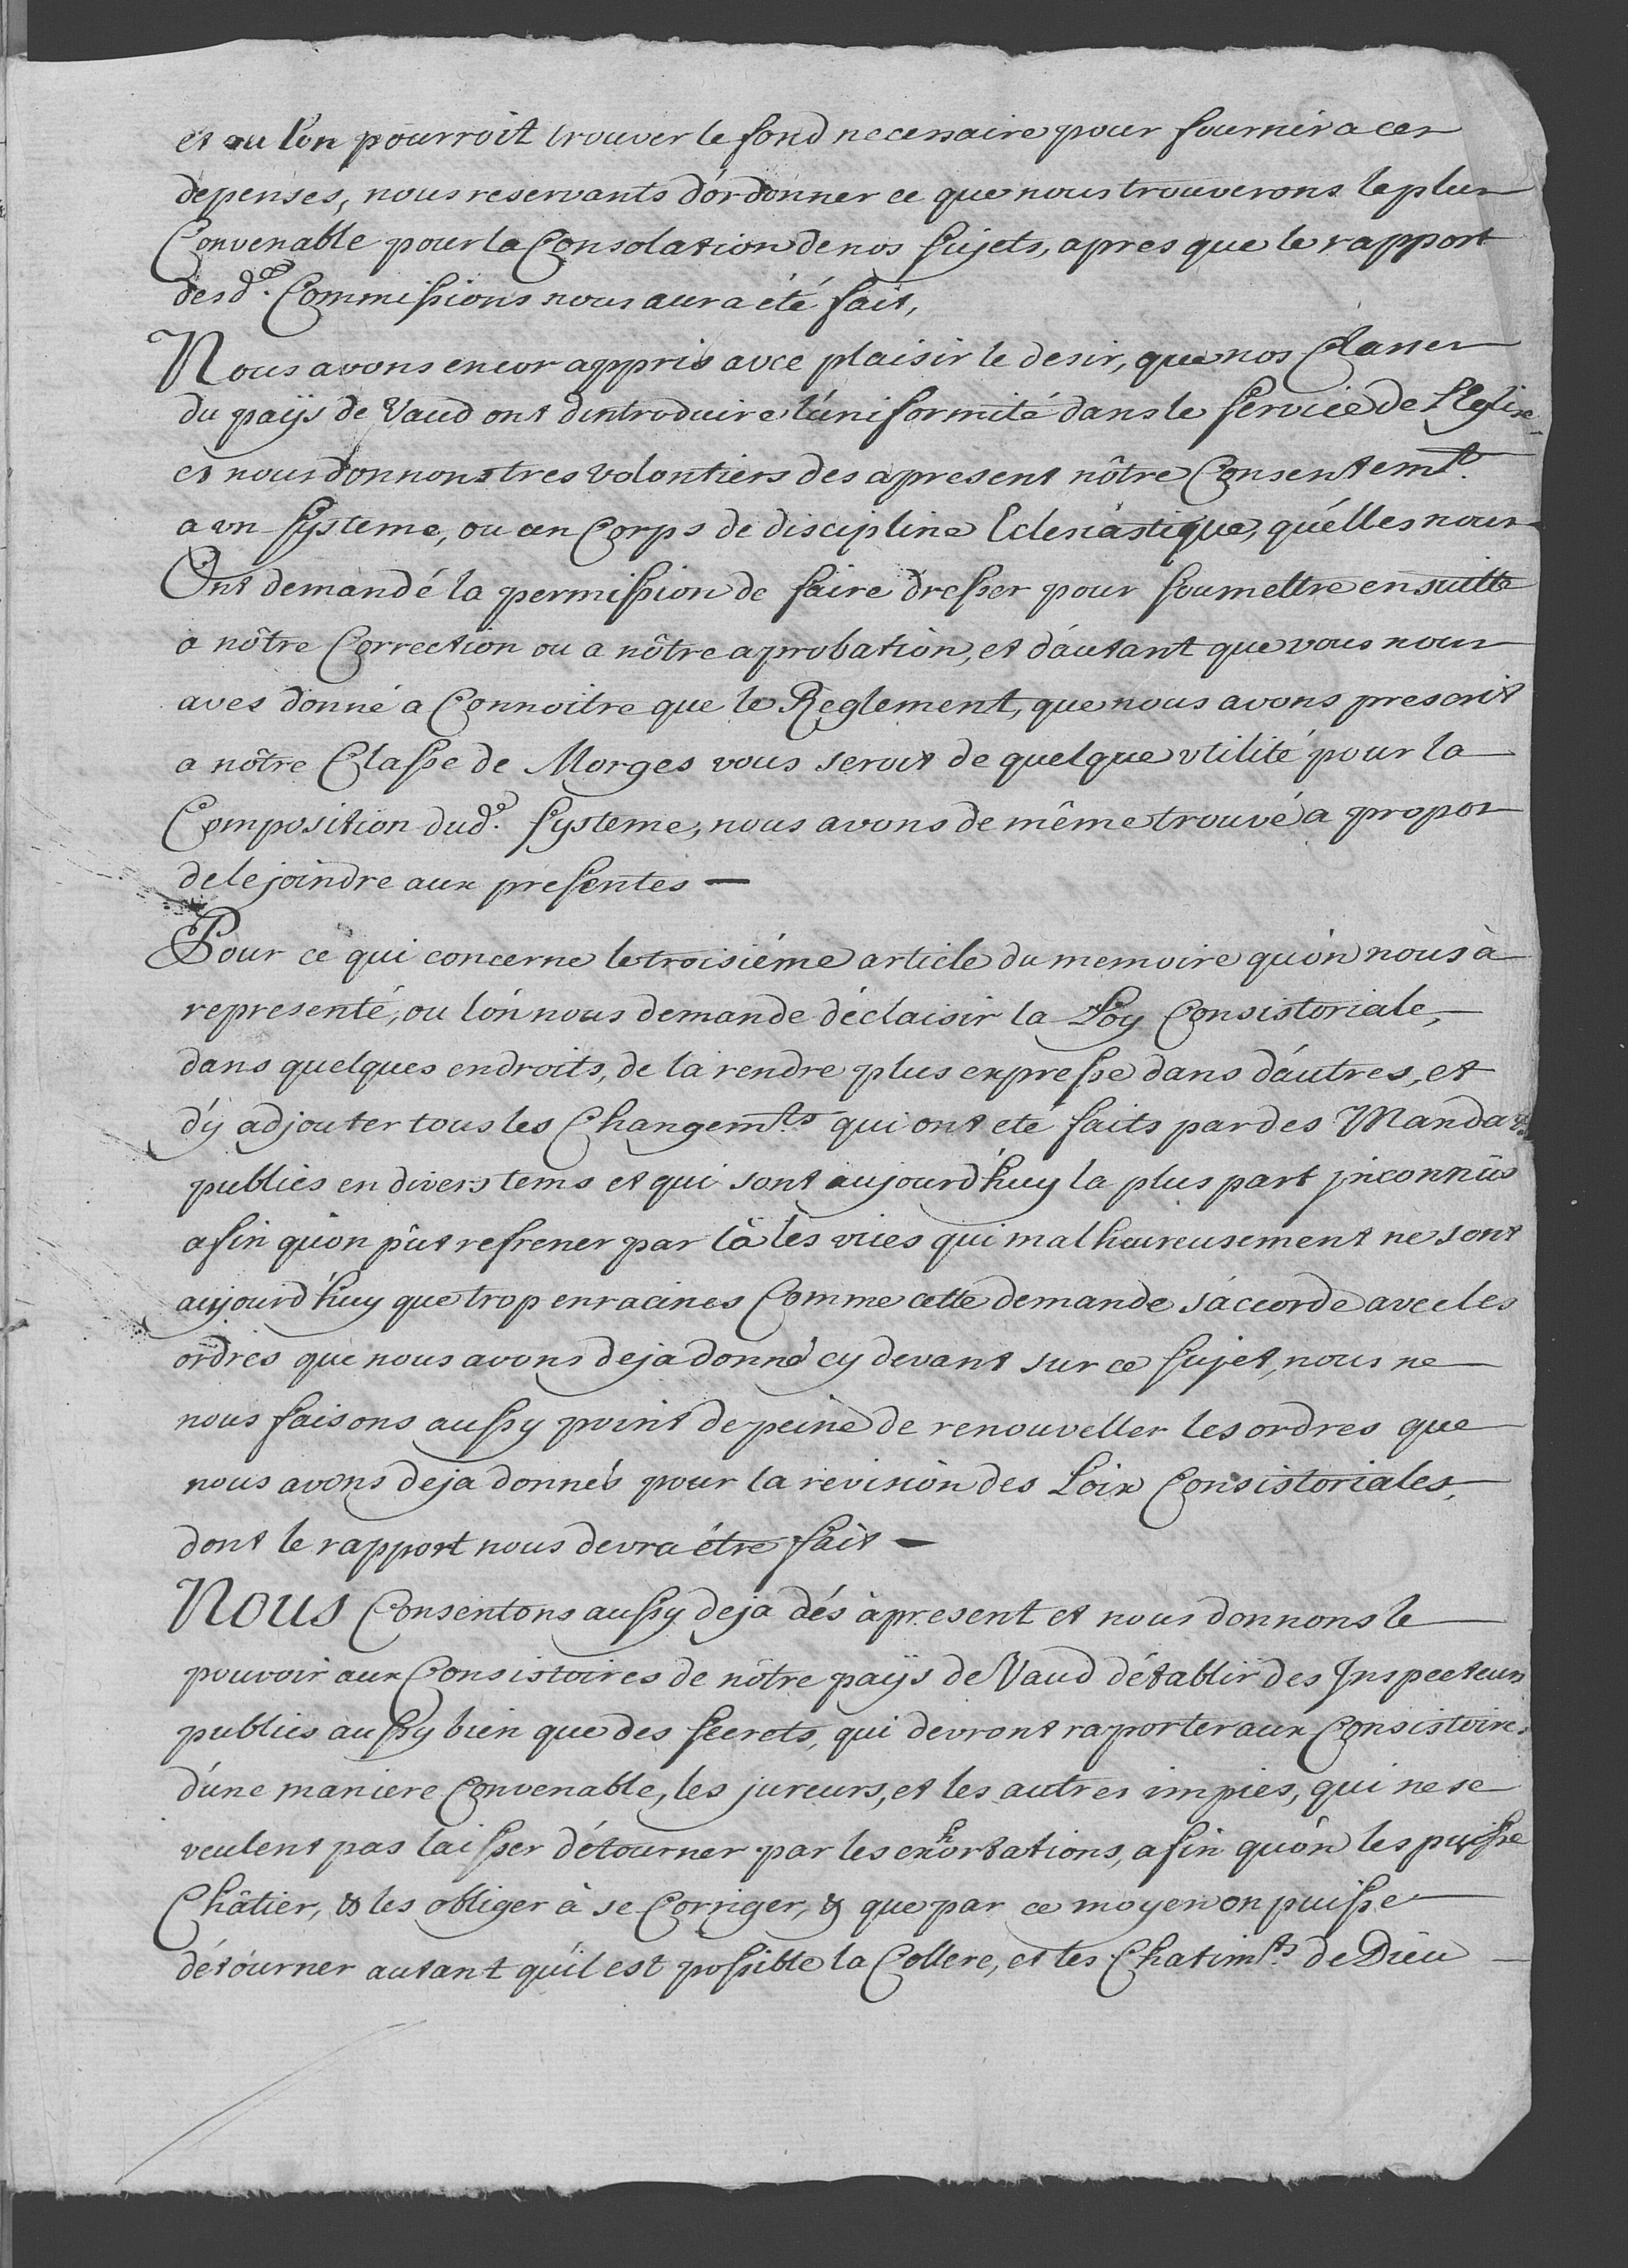 et ou l'on pourroit trouver le fond necessaire pour fournir a ces
depenses, nous reservants d'ordonner ce que nous trouverons le plus
Convenable pour la Consolation de nos sujets, apres que le rapport
desd.es Commissions nous aura été fait,
Nous avons encor appris avec plaisir le desir, que nos Classes
du païs de Vaud ont d'introduire l'uniformité dans le service de l'Eglise
et nous donnons tres volontiers des apresent nôtre Consentemt.
a vn systeme, ou un Corps de discipline Eclesiastique, qu'elles nous
Ont demandé la permission de faire dresser pour soumettre ensuitte
a nôtre Correction ou a nôtre aprobation, et d'autant que vous nous
aves donné a Connoitre que le Reglement, que nous avons prescrit
a nôtre Classe de Morges vous seroit de quelque vtilité pour la
Composition dud.e systeme, nous avons de même trouvé a propos
de le joindre aux presentes —
Pour ce qui concerne le troisiéme article du memoire qu'on nous à
representé, ou l'on nous demande d'éclaisir la Loy Consistoriale,
dans quelques endroits, de la rendre plus expresse dans d'autres, et
d'y adjouter tous les Changemts qui ont eté faits par des Mandats
publies en divers tems et qui sont aujourd'huy la plus part jnconnûs
afin qu'on pût refrener par là les vices qui malheureusement ne sont
aujourd'huy que trop enracines Comme cette demande s'accorde avec les
ordres que nous avons deja donné cy devant sur ce sujet, nous ne
nous faisons aussy point de peine de renouveller les ordres que
nous avons deja donnés pour la revision des Loix Consistoriales,
dont le rapport nous devra être fait —
Nous Consentons aussy deja dés à present et nous donnons le
pouvoir aux Consistoires de nôtre païs de Vaud d'établir des Inspecteurs
publics aussy bien que des secrets, qui devront raporter aux Consistoires
d'une maniere Convenable, les jureurs, et les autres impies, qui ne se
veulent pas laisser détourner par les exhortations, afin qu'on les puisse
Châtier, & les obliger à se Corriger, & que par ce moyen on puisse
détourner autant qu'il est possible la Collere, et les Chatimts de Dieu